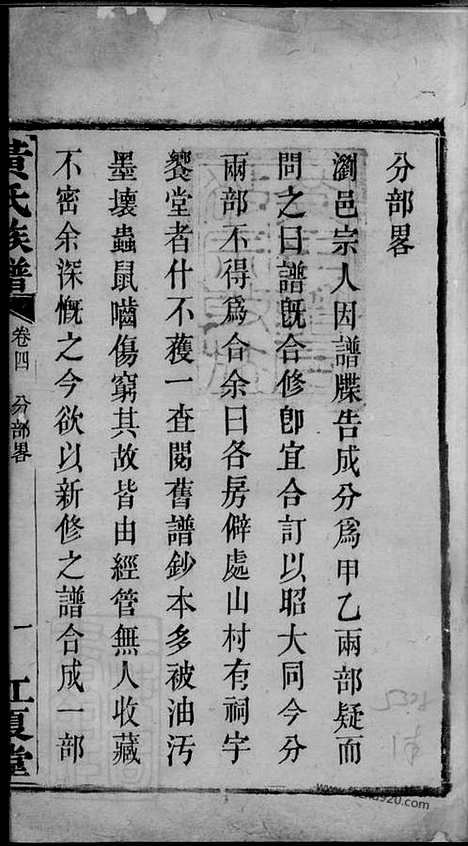 分部畧
瀏邑宗人因譜牒告成分為甲乙兩部疑而
問之曰譜既合修卽宜合訂以昭大同今分
兩部不得為合余曰各房僻處山村有祠宇
饗堂者什不獲一查閱舊譜鈔本多被油汚
墨壞蟲鼠嚙傷窮其故皆由經管無人收藏
不密余深慨之今欲以新修之譜合成一部
黃氏族譜
卷四
分部畧
一
江夏堂